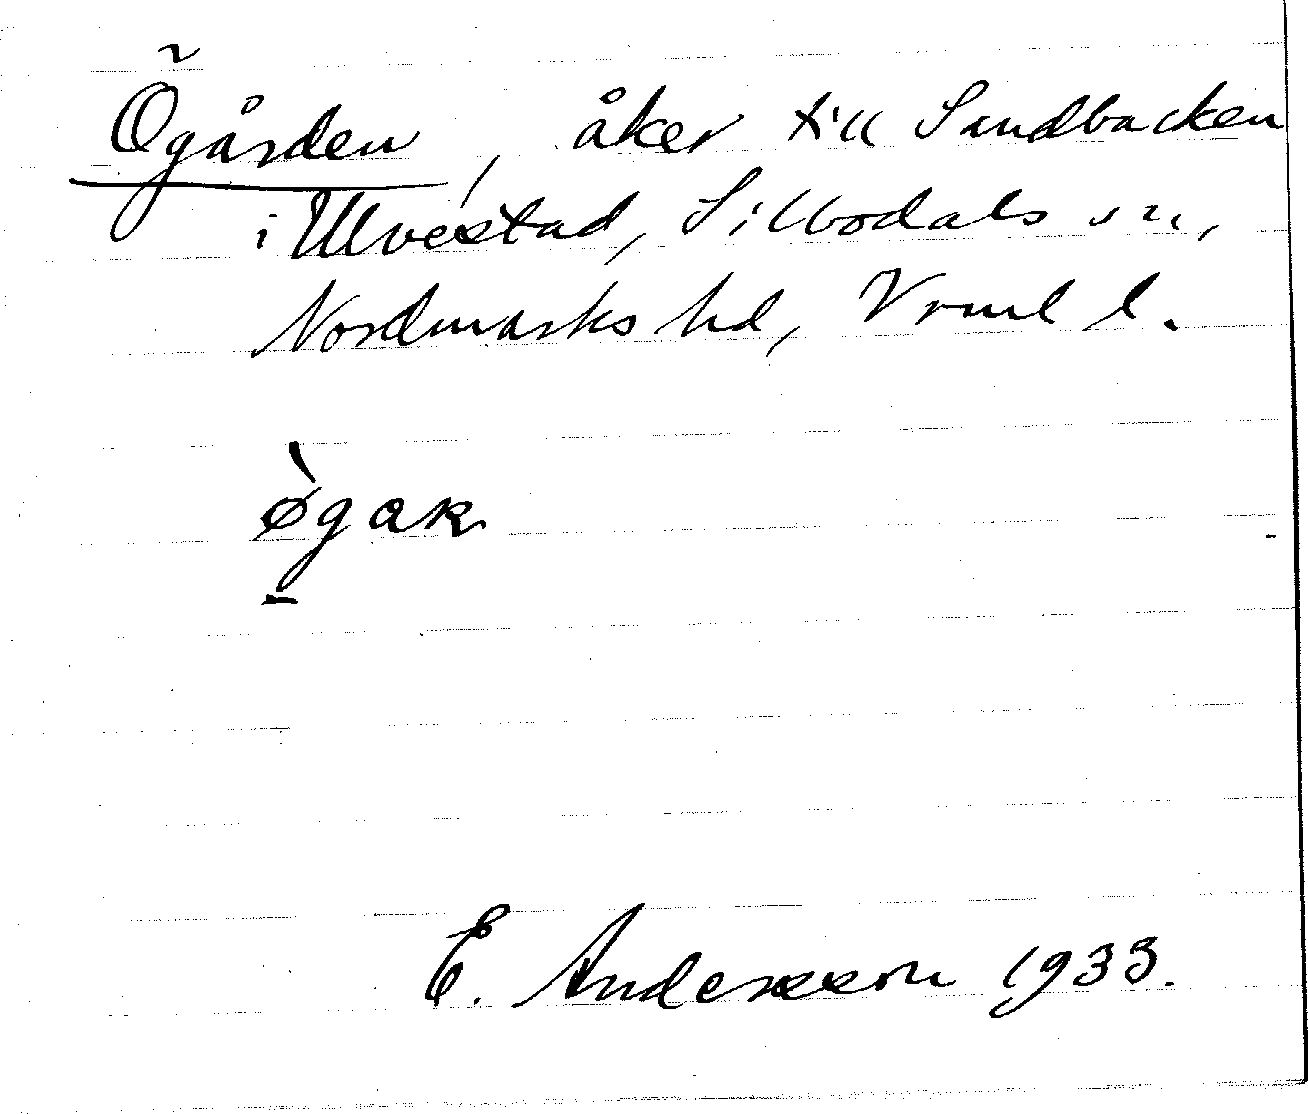 Ögården, åker till Sandbacken
i Ulvestad, Sillbodals sn,
Nordmarks hd, Vrml l.
ø̀gaʀ
E. Andersson 1933.